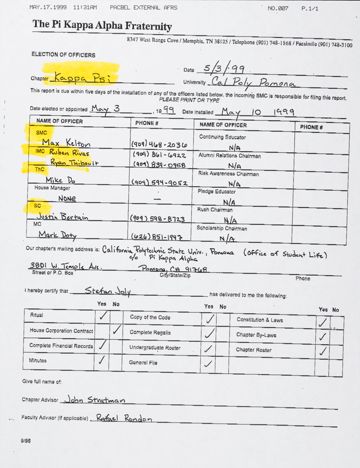 MAY.17.1999 11:31AM PACBEL EXTERNAL AFRS NO.007 P.1/1
The Pi Kappa Alpha Fraternity
8347 West Range Cove / Memphis, TN 38125 / Telephone (901) 748-1868 / Facsimile (901) 748-3100
ELECTION OF OFFICERS
Date 5/3/99
Chapter Kappa Psi University Cal Poly Pomona
This report is due within five days of the installation of any of the officers listed below, the incoming SMC is responsible for filing this report.
PLEASE PRINT OR TYPE
Date elected or appointed May 3 1999 Date installed May 10 1999
NAME OF OFFICER PHONE # NAME OF OFFICER PHONE #
SMC Continuing Educator
Max Kelton (909) 468-2036 N/A
IMC Ruben Rivas (909) 861-6922 Alumni Relations Chairman
Ryan Thibault (909) 839-0958 N/A
ThC Risk Awareness Chairman
Mike Do (909) 594-9052 N/A
House Manager Pledge Educator
NONE — N/A
SC Rush Chairman
Justin Bertain (909) 598-8723 N/A
MC Scholarship Chairman
Mark Doty (626) 851-1997 N/A
Our chapter's mailing address is: California Polytechnic State Univ., Pomona (Office of Student Life)
c/o Pi Kappa Alpha
3801 W. Temple Ave. Pomona, CA 91768
Street or P.O. Box City/State/Zip Phone
I hereby certify that Stefan Joly has delivered to me the following:
Yes No Yes No Yes No
Ritual ✓ Copy of the Code ✓ Constitution & Laws ✓
House Corporation Contract ✓ Complete Regalia ✓ Chapter By-Laws ✓
Complete Financial Records ✓ Undergraduate Roster ✓ Chapter Roster ✓
Minutes ✓ General File ✓
Give full name of:
Chapter Advisor John Stratman
Faculty Advisor (if applicable) Rafael Rondon
9/98